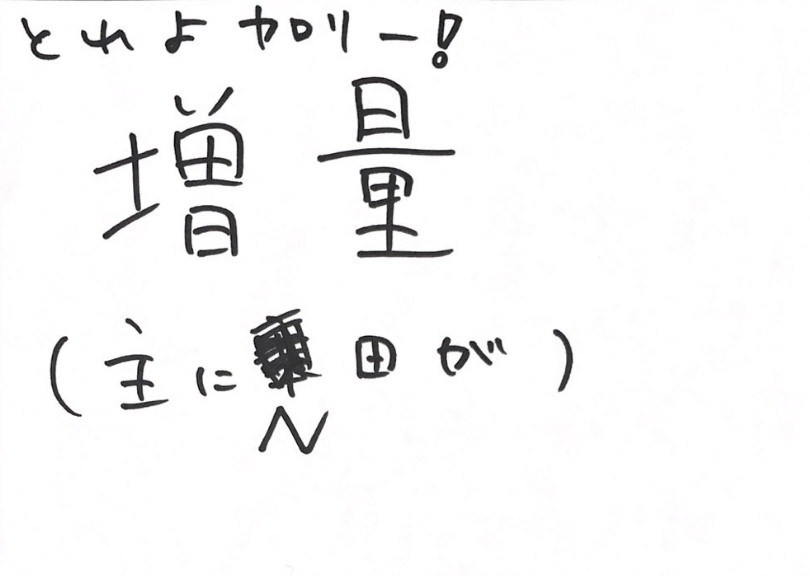 とれよカロリー!
増量
(主に田が)
N